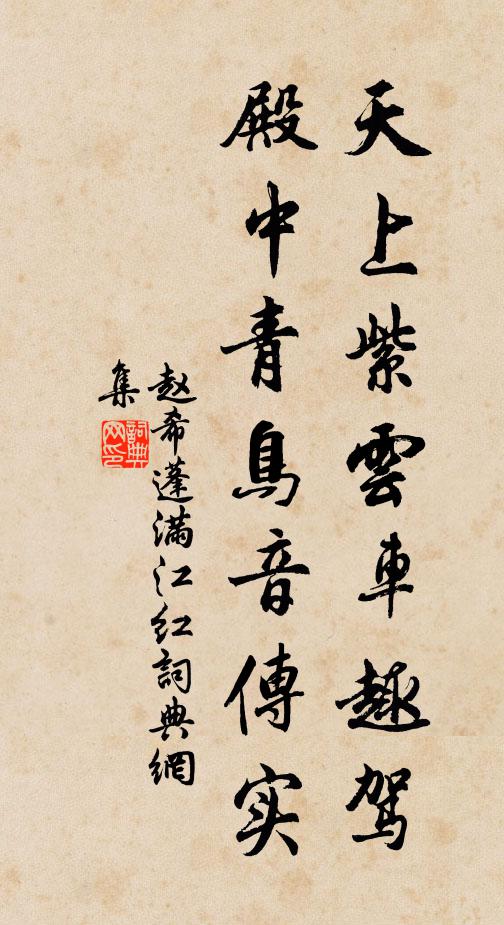 天上紫雲車趣駕
殿中青鳥音傳实
赵希蓬满江红詞典網
集
詞典
网印